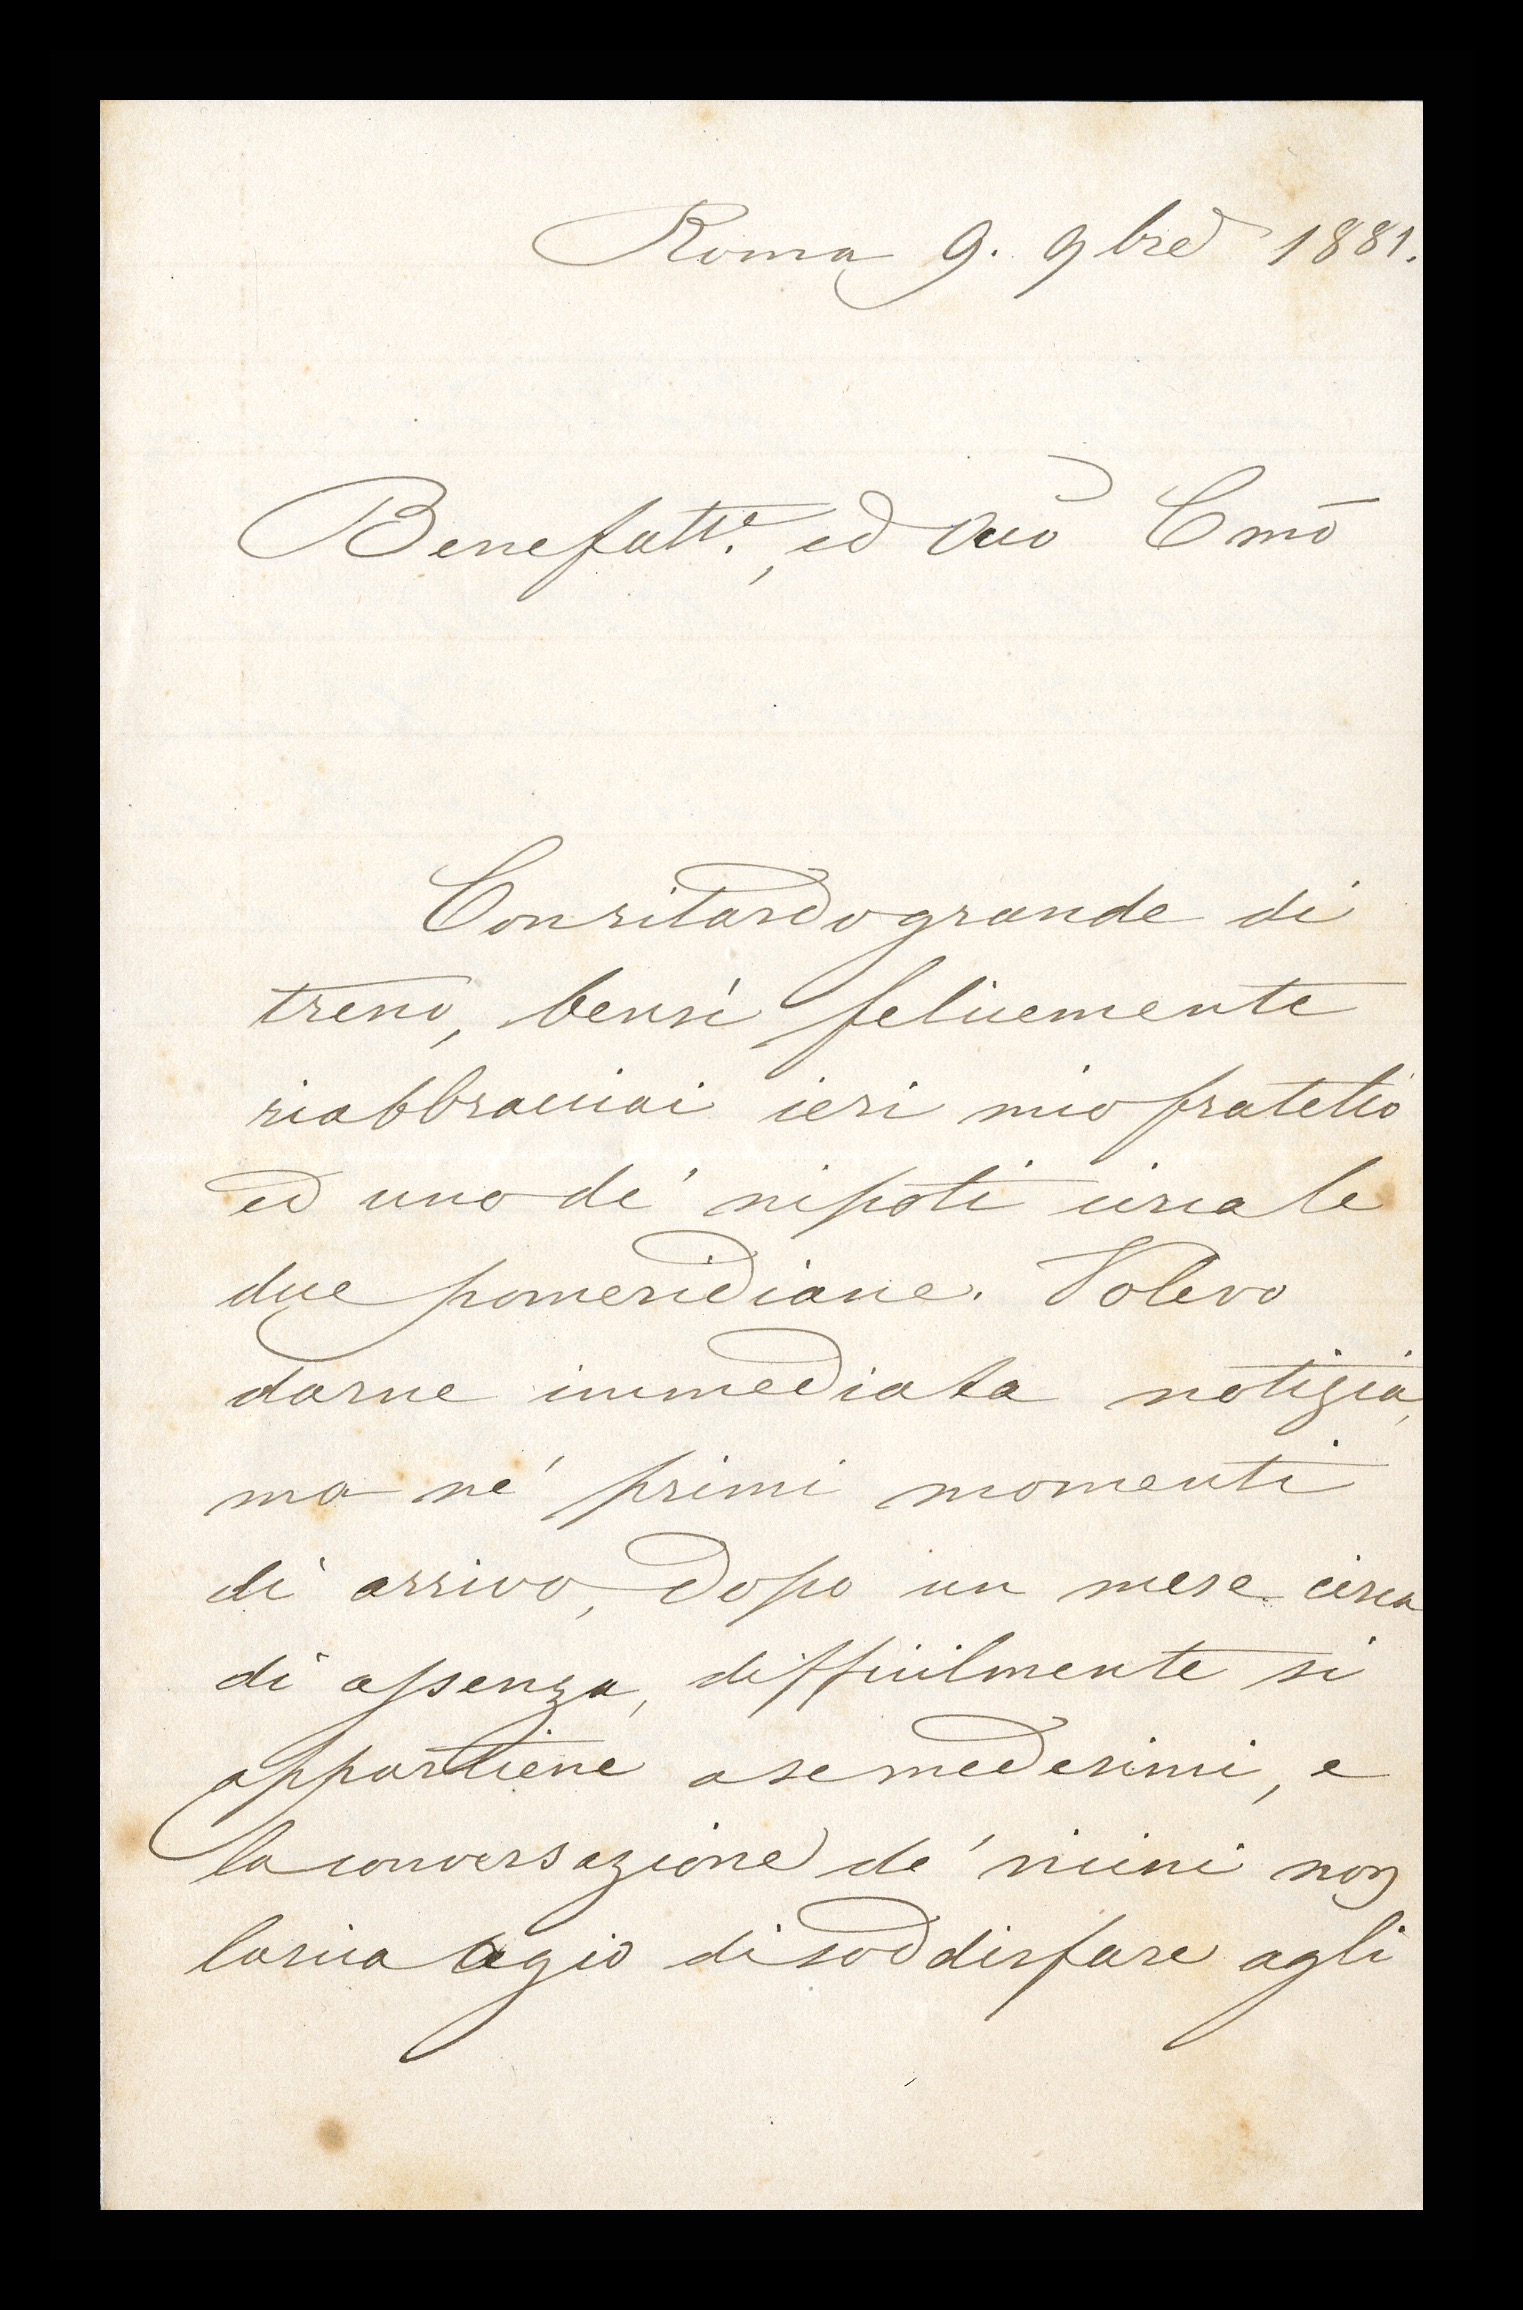 Roma 9. 9bre 1881.
Benefatt.e, ed Cmō
Con ritardo grande di
treno, bensì felicemente
riabbracciai ieri mio fratello
ed uno de' nipoti circa le
due pomeridiane. Volevo
darne immediata notizia,
ma ne' primi momenti
di arrivo, dopo un mese circa
di assenza, difficilmente si
appartiene a se medesimi, e
la conversazione de' vicini non
lascia agio di soddisfare agli